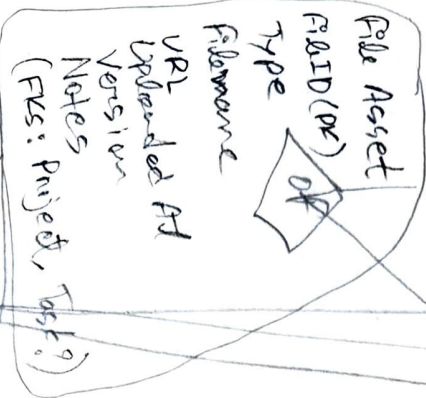 File Asset
FileID (PK)
Type
Filename
URL
Uploaded At
Version
Notes
(FKs: Project, Task?)
of